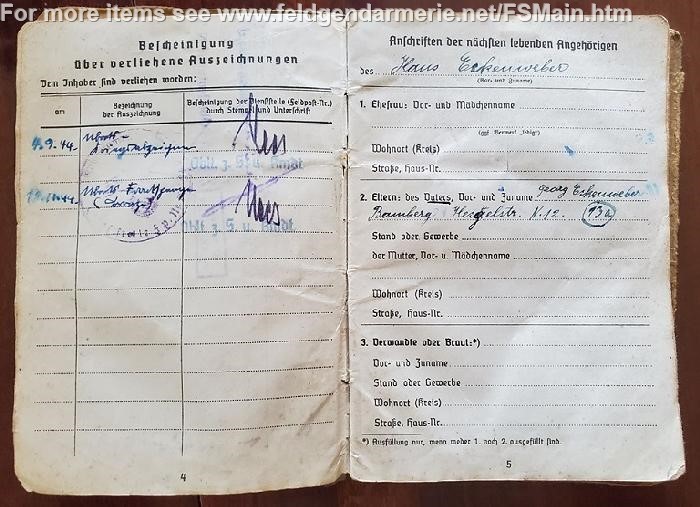 For more items see www.feldgendarmerie.net/FSMain.htm
Bescheinigung
über verliehene Auszeichnungen
Dem Inhaber sind verliehen worden:
am
Bezeichnung
der Auszeichnung
Bescheinigung der Dienststelle (Feldpost-Nr.)
durch Stempel und Unterschrift
4.9.44.
Oblt. z. S. u.
Oblt z. S. u.
4
Anschriften der nächsten lebenden Angehörigen
des Hans Eckenweber
(Vor- und Zuname)
1. Ehefrau: Vor- und Mädchenname
(ggf. Vermerk „ledig“)
Wohnort (Kreis)
Straße, Haus-Nr.
2. Eltern: des Vaters, Vor- und Zuname Georg Eckenweber
Bamberg
Stand oder Gewerbe
der Mutter, Vor- u. Mädchenname
Wohnort (Kreis)
Straße, Haus-Nr.
3. Verwandte oder Braut:*)
Vor- und Zuname
Stand oder Gewerbe
Wohnort (Kreis)
Straße, Haus-Nr.
*) Ausfüllung nur, wenn weder 1. noch 2. ausgefüllt sind.
5